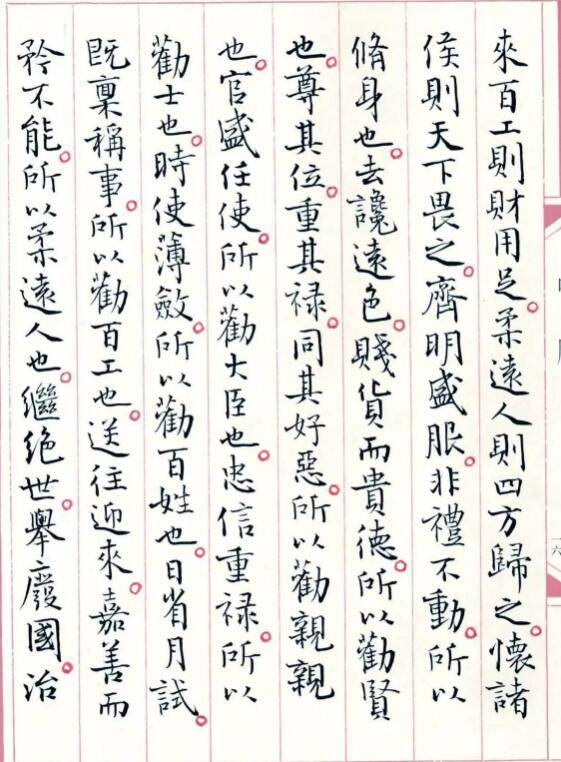 來百工則財用足。柔遠人則四方歸之。懷諸
侯則天下畏之。齊明盛服。非禮不動。所以
脩身也。去讒遠色。賤貨而貴德。所以勸賢
也。尊其位。重其禄。同其好惡。所以勸親親
也。官盛任使。所以勸大臣也。忠信重禄。所以
勸士也。時使薄斂。所以勸百姓也。日省月試。
既稟稱事。所以勸百工也。送往迎來。嘉善而
矜不能。所以柔遠人也。繼絕世。舉廢國。治
六